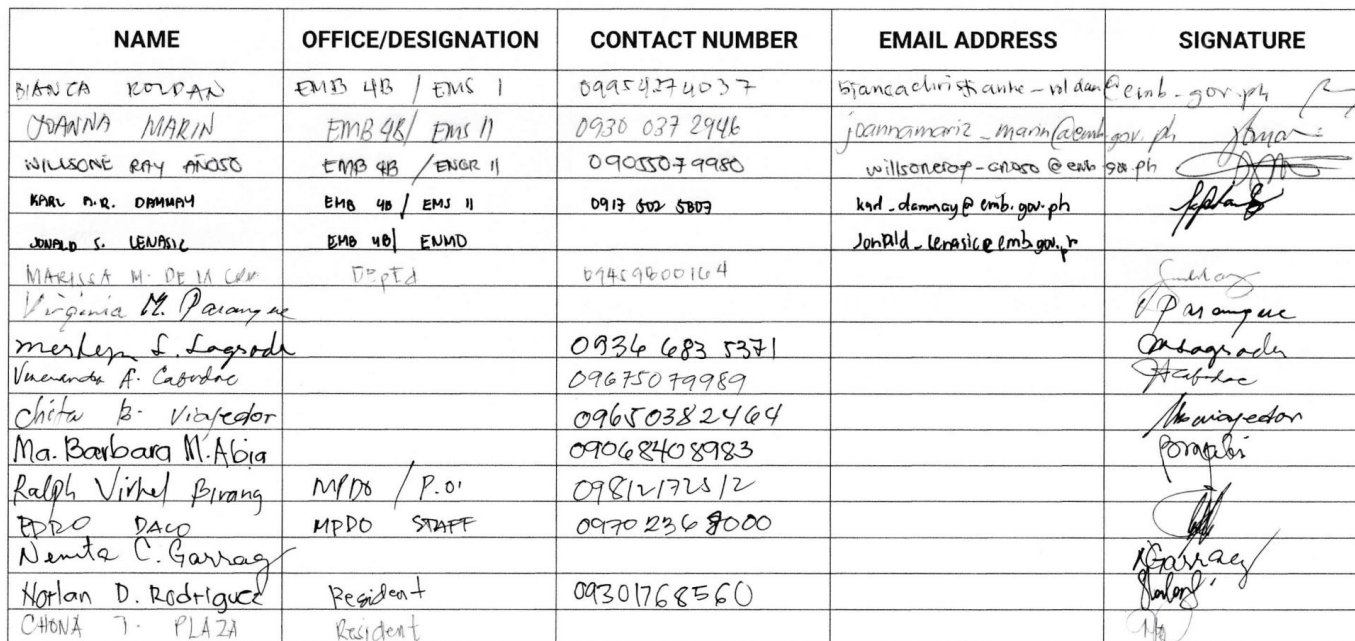 NAME OFFICE/DESIGNATION CONTACT NUMBER EMAIL ADDRESS SIGNATURE
BIANCA ROLDAN EMB 4B / EMS I 09954274037 biancachristianne_roldan@emb.gov.ph
JOANNA MARIN EMB 4B/ EMS II 0930 037 2946 joannamariz_marin@emb.gov.ph
WILLSONE RAY AÑOSO EMB 4B /ENGR II 09055079980 @emb.gov.ph
KARL A.R. DAMMAY EMB 4B / EMS II 0917 502 5807 karl_dammay@emb.gov.ph
JONALD S. LENASIC EMB 4B/ ENMO Jonald_lenasic@emb.gov.ph
MARISSA M. DE LA DepEd 09459800164
Virginia M. Parangue Parangue
L. 0936 683 5371
A. 09675079989
Chita B. Viajedor 09650382464 Viajedor
Ma. Barbara M. Abia 09068408983
Ralph Virhel Birang MPDO / P.O. 09812172512
DACO MPDO STAFF 09702368000
Nenita C. Garray NGarray
Horlan D. Rodriguez Resident 09301768560
CHONA T. PLAZA Resident